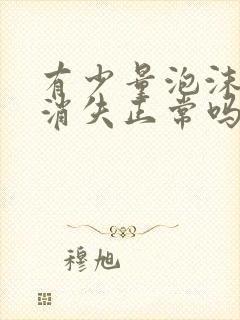 有少量泡沫
消失正常吗
穆旭